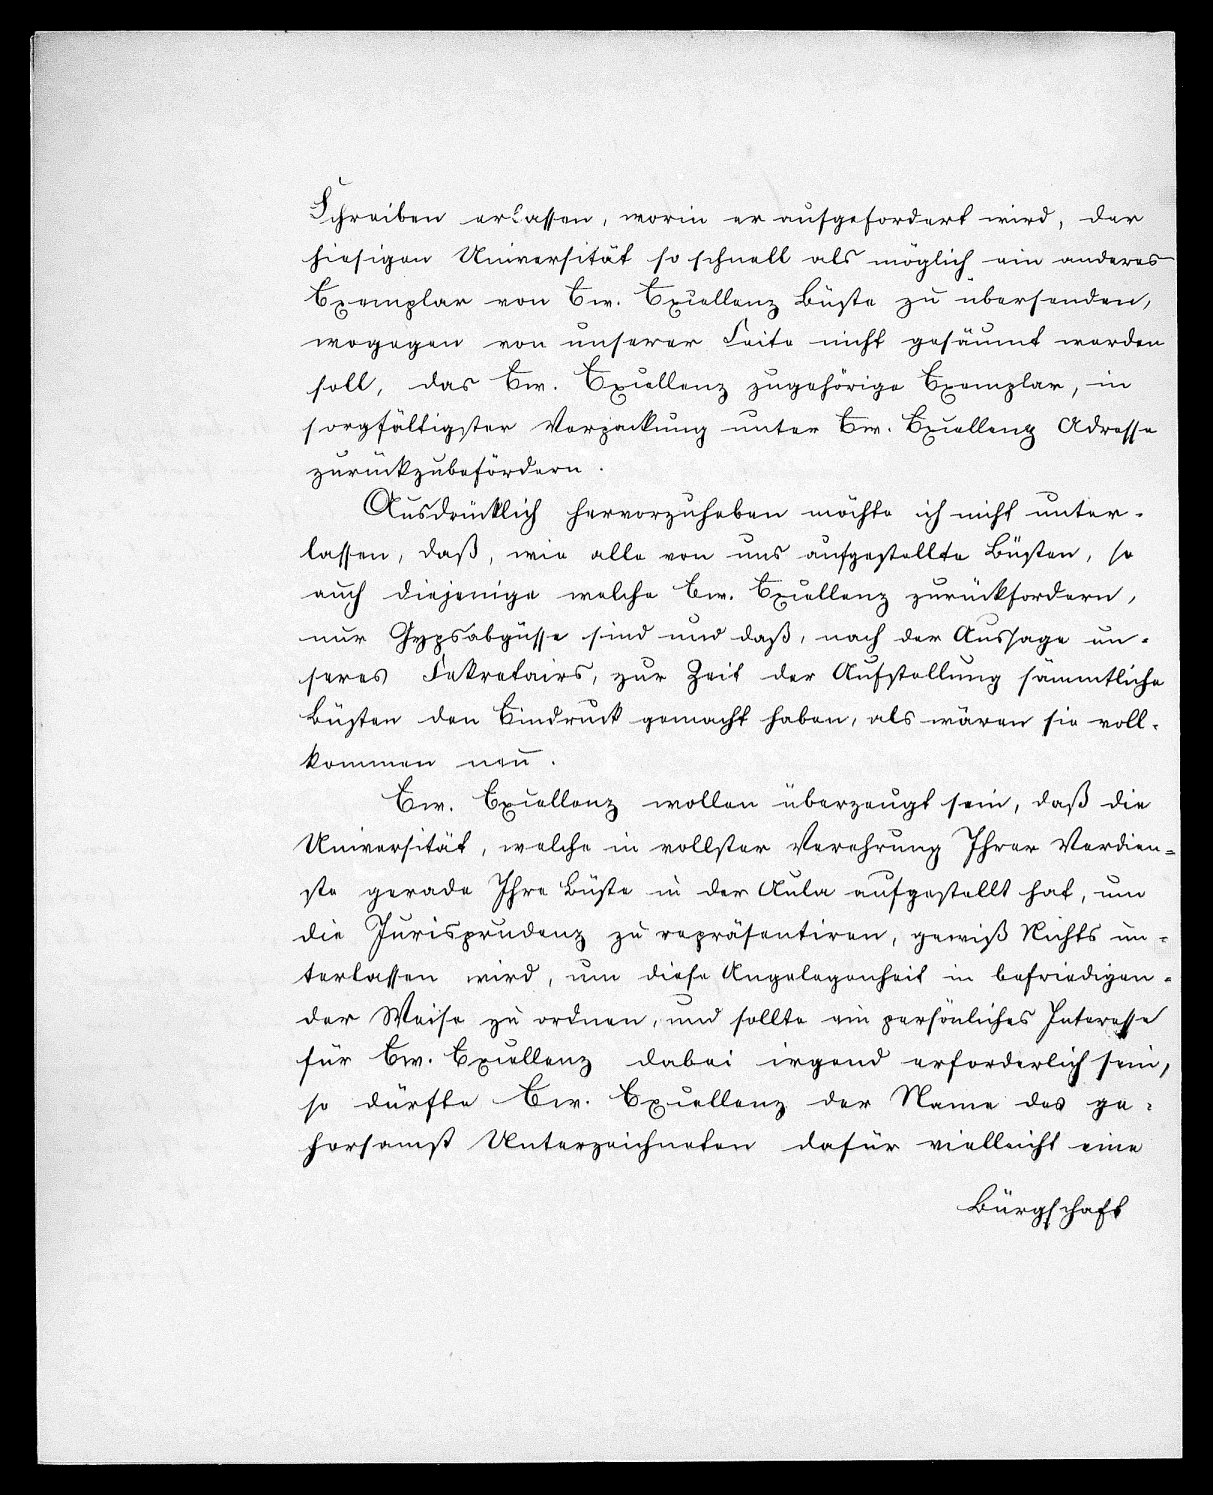 Schreiben erlassen, worin er aufgefordert wird, der
hiesigen Universität so schnell als möglich ein anderes
Exemplar von Ew. Excellenz Büste zu übersenden,
wogegen von unserer Seite nicht gesäumt werden
soll, das Ew. Excellenz zugehörige Exemplar, in
sorgfältigster Verpackung unter Ew. Excellenz Adresse
zurückzubefördern.
Ausdrücklich hervorzuheben möchte ich nicht unter-
lassen, daß, wie alle von uns aufgestellte Büsten, so
auch diejenige welche Ew. Excellenz zurückfordern,
nur Gypsabgüsse sind und daß, nach der Aussage un-
seres Sekretairs, zur Zeit der Aufstellung sämmtliche
Büsten den Eindruck gemacht haben, als wären sie voll-
kommen neu.
Ew. Excellenz wollen überzeugt sein, daß die
Universität, welche in vollster Verehrung Ihrer Verdien=
ste gerade Ihre Büste in der Aula aufgestellt hat, um
die Jurisprudenz zu repräsentiren, gewiß Nichts un-
terlassen wird, um diese Angelegenheit in befriedigen-
der Weise zu ordnen, und sollte ein persönliches Interesse
für Ew. Excellenz dabei irgend erforderlich sein,
so dürfte Ew. Excellenz der Name des ge-
horsamst Unterzeichneten dafür vielleicht eine
Bürgschaft